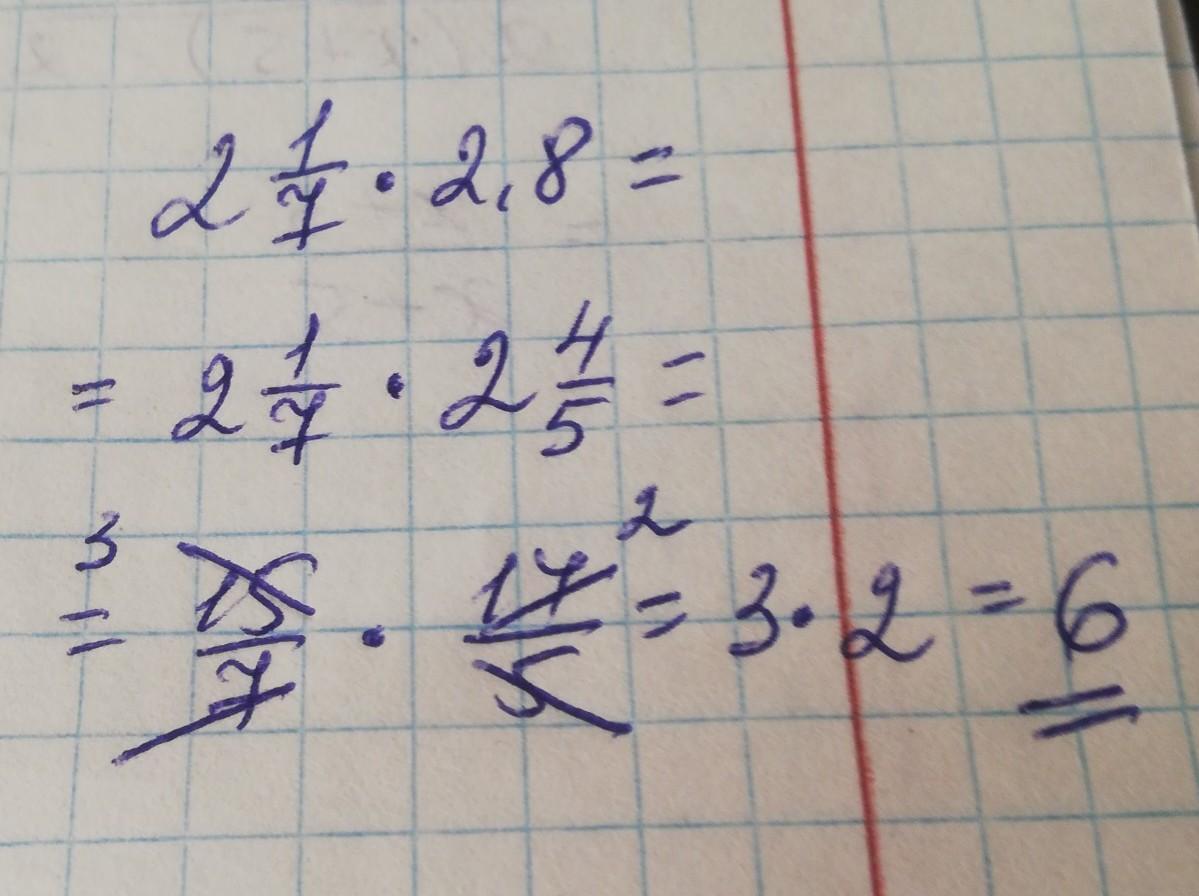 2 1/7 · 2,8 =
= 2 1/7 · 2 4/5 =
= 3 15/7 · 17/5 2 = 3 · 2 = 6